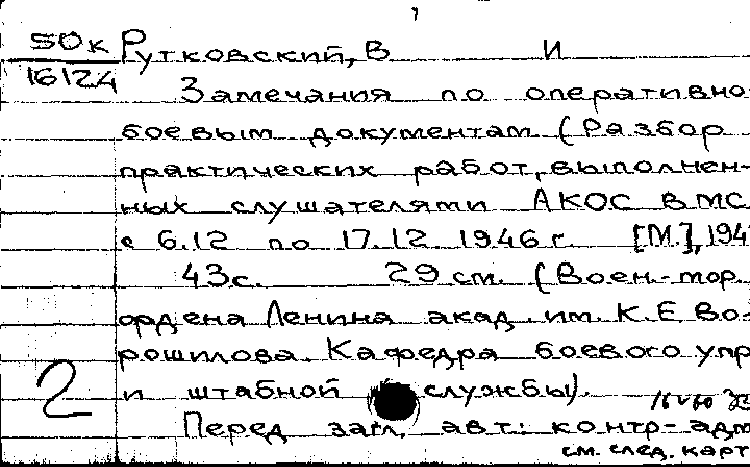 50к Рутковский, В И
16124
Замечания по оперативно-
боевым документам (Разбор
практических работ, выполнен-
ных слушателями АКОС ВМС
с 6.12 по 17.12 1946 г. [М.], 194
43с. 29 см. (Воен.-мор.
ордена Ленина акад. им. К.Е Во-
рошилова. Кафедра боевого упр
2 и штабной службы).
Перед загл. авт.: контр-адм
см. след. карт